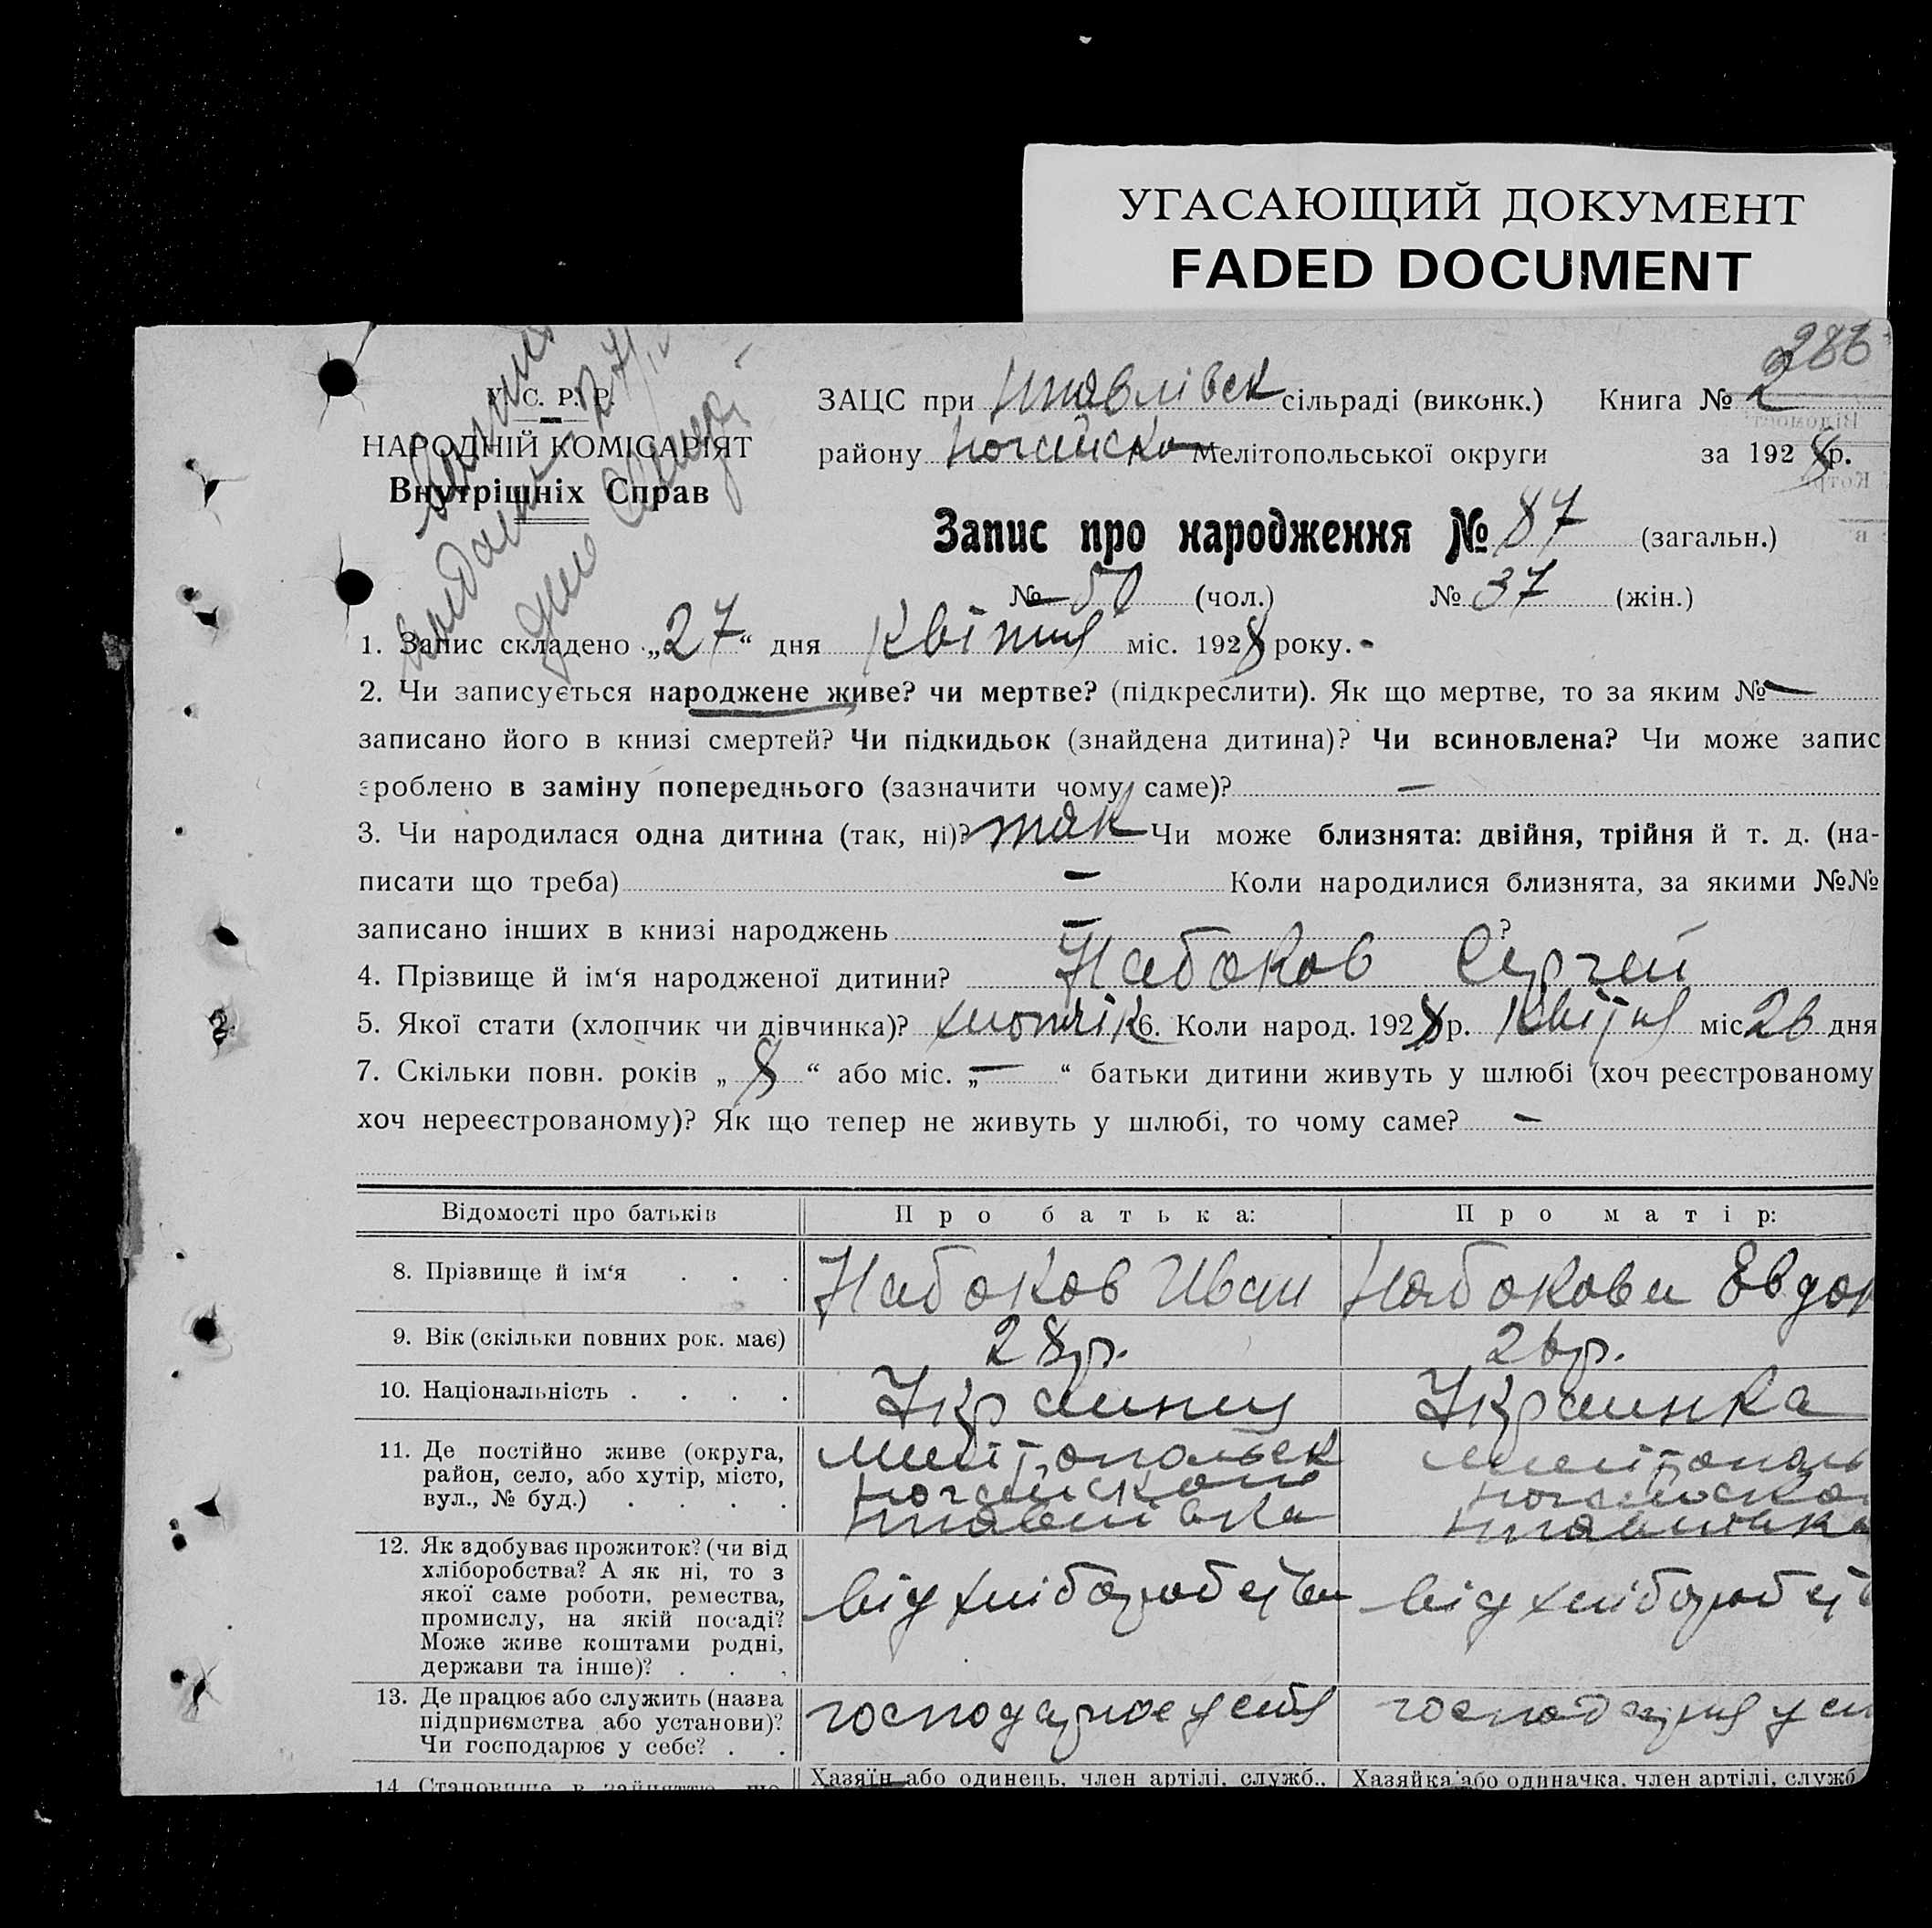 УГАСАЮЩИЙ ДОКУМЕНТ
FADED DOCUMENT
286
У. С. Р. Р.
НАРОДНІЙ КОМІСАРІЯТ
Внутрішніх Справ
ЗАЦС при сільраді (виконк.) Книга № 2
району Мелітопольської округи за 1928 р.
Запис про народження № 87 (загальн.)
№ 50 (чол.) № 37 (жін.)
1. Запис складено „27“ дня Квітня міс. 1928 року. -
2. Чи записується народжене живе? чи мертве? (підкреслити). Як що мертве, то за яким № —
записано його в книзі смертей? Чи підкидьок (знайдена дитина)? Чи всиновлена? Чи може запис
зроблено в заміну попереднього (зазначити чому саме)? —
3. Чи народилася одна дитина (так, ні)? так Чи може близнята: двійня, трійня й т. д. (на-
писати що треба) — Коли народилися близнята, за якими №№
записано інших в книзі народжень — ?
4. Прізвище й ім‘я народженої дитини? Набоков Сергей
5. Якої стати (хлопчик чи дівчинка)? хлопчік 6. Коли народ. 1928 р. Квітня міс 26 дня
7. Скільки повн. років „8“ або міс. „—“ батьки дитини живуть у шлюбі (хоч реєстрованому
хоч нереєстрованому)? Як що тепер не живуть у шлюбі, то чому саме? —
Відомості про батьків Про батька: Про матір:
8. Прізвище й ім‘я . . . Набоков Иван Набокова Евдок
9. Вік (скільки повних рок. має) 28 р. 26 р.
10. Національність . . . . Украинец Украинка
11. Де постійно живе (округа,
район, село, або хутір, місто,
вул., № буд.) . . . .
Мелітопольск
12. Як здобуває прожиток? (чи від
хліборобства? А як ні, то з
якої саме роботи, ремества,
промислу, на якій посаді?
Може живе коштами родні,
держави та інше)? . . .
від хліборобства від хліборобств
13. Де працює або служить (назва
підприємства або установи)?
Чи господарює у себе? . .
господарює у себя
14. Становище в занятті, що
Хазяїн або одинець, член артілі, служб., Хазяйка або одиначка, член артілі, служб